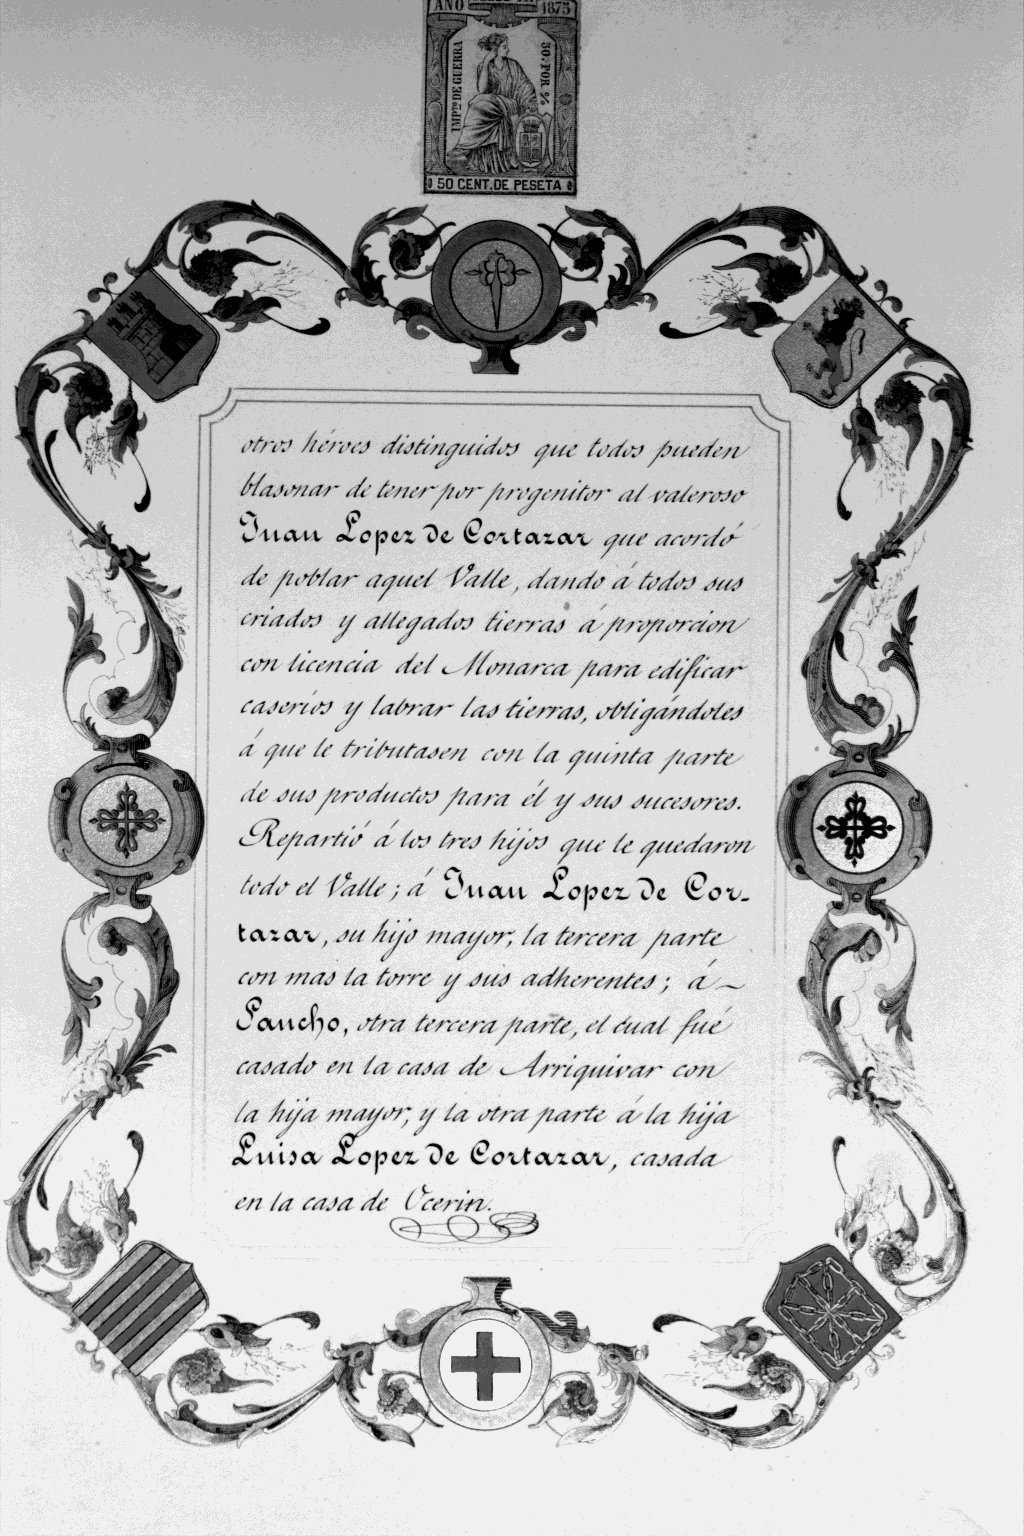 AÑO 1875
IMPTO DE GUERRA
50 POR %
50 CENT. DE PESETA
otros héroes distinguidos que todos pueden
blasonar de tener por progenitor al valeroso
Juan Lopez de Cortazar que acordó
de poblar aquel Valle, dando á todos sus
criados y allegados tierras á proporcion
con licencia del Monarca para edificar
caseríos y labrar las tierras, obligándoles
á que le tributasen con la quinta parte
de sus productos para él y sus sucesores.
Repartió á los tres hijos que le quedaron
todo el Valle; á Juan Lopez de Cor-
tazar, su hijo mayor, la tercera parte
con mas la torre y sus adherentes; á
Sancho, otra tercera parte, el cual fué
casado en la casa de Arriquivar con
la hija mayor, y la otra parte á la hija
Luisa Lopez de Cortazar, casada
en la casa de Ucerin.